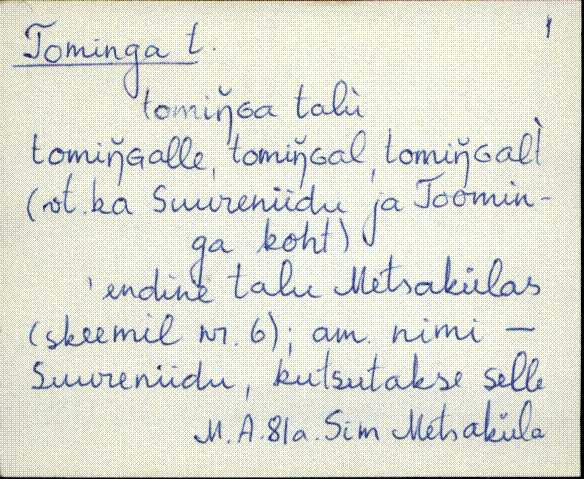 Tominga t. 1
tomiŋ̆ɢa talù
tomiŋ̆ɢalle, tomiŋ̆ɢal, tomiŋ̆ɢal̀t
(vt. ka Suureniidu ja Toomin-
ga koht)
'endine talu Metsakülas
(skeemil nr. 6); am. nimi —
Suureniidu, kutsutakse selle
M.A. 81a. Sim Metsaküla